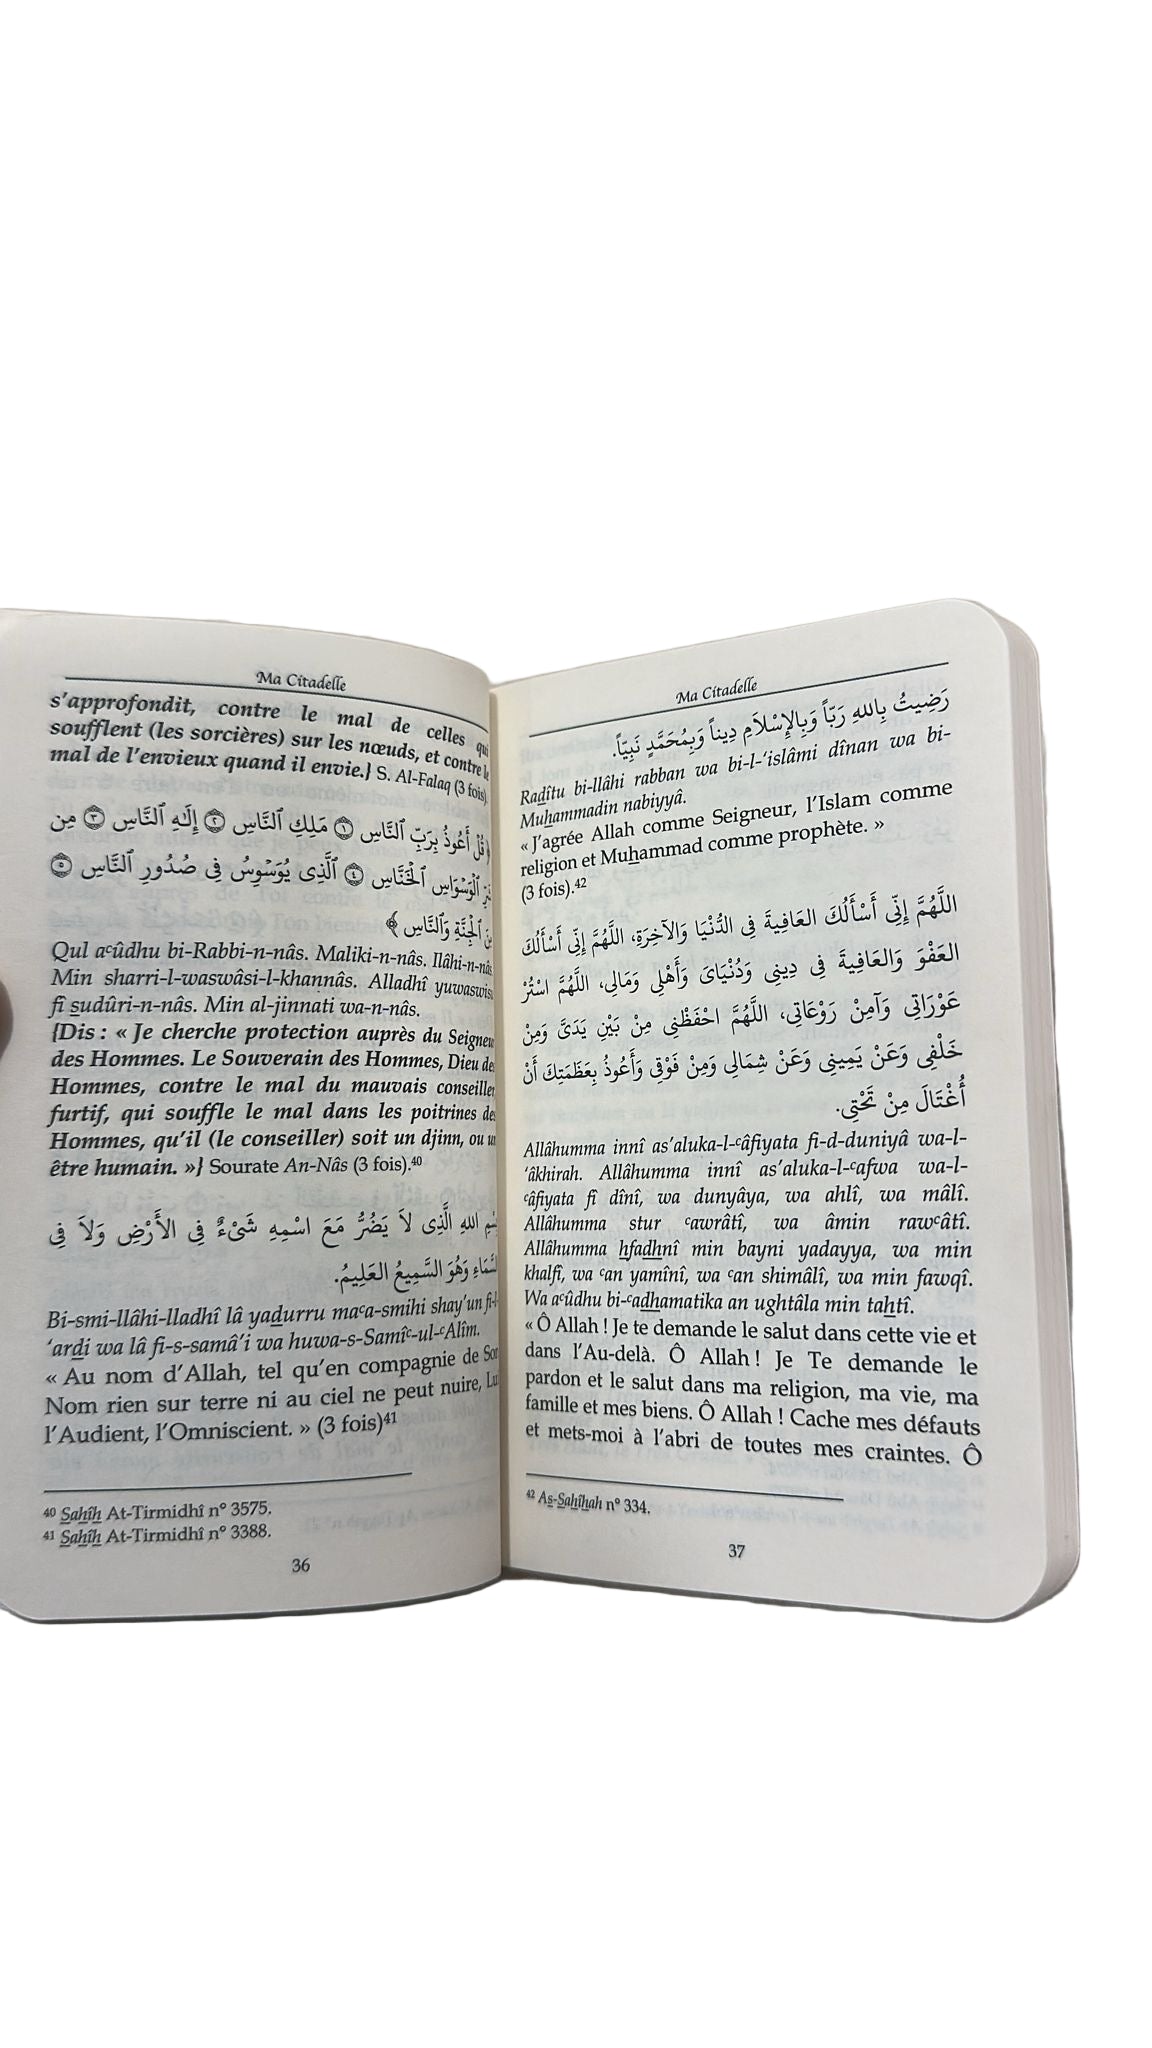 Ma Citadelle
s'approfondit, contre le mal de celles qui
soufflent (les sorcières) sur les nœuds, et contre le
mal de l'envieux quand il envie.} S. Al-Falaq (3 fois).
﴿ قُلْ أَعُوذُ بِرَبِّ ٱلنَّاسِ ۝١ مَلِكِ ٱلنَّاسِ ۝٢ إِلَٰهِ ٱلنَّاسِ ۝٣ مِن
شَرِّ ٱلْوَسْوَاسِ ٱلْخَنَّاسِ ۝٤ ٱلَّذِى يُوَسْوِسُ فِى صُدُورِ ٱلنَّاسِ ۝٥
مِنَ ٱلْجِنَّةِ وَٱلنَّاسِ ﴾
Qul aᶜûdhu bi-Rabbi-n-nâs. Maliki-n-nâs. Ilâhi-n-nâs.
Min sharri-l-waswâsi-l-khannâs. Alladhî yuwaswisu
fî sudûri-n-nâs. Min al-jinnati wa-n-nâs.
{Dis : « Je cherche protection auprès du Seigneur
des Hommes. Le Souverain des Hommes, Dieu des
Hommes, contre le mal du mauvais conseiller
furtif, qui souffle le mal dans les poitrines des
Hommes, qu'il (le conseiller) soit un djinn, ou un
être humain. »} Sourate An-Nâs (3 fois).⁴⁰
بِسْمِ اللهِ الَّذِى لاَ يَضُرُّ مَعَ اسْمِهِ شَىْءٌ فِى الأَرْضِ وَلاَ فِى
السَّمَاءِ وَهُوَ السَّمِيعُ العَلِيمُ.
Bi-smi-llâhi-lladhî lâ yadurru maᶜa-smihi shay'un fi-l-
'ardi wa lâ fi-s-samâ'i wa huwa-s-Samîᶜ-ul-ᶜAlîm.
« Au nom d'Allah, tel qu'en compagnie de Son
Nom rien sur terre ni au ciel ne peut nuire, Lui
l'Audient, l'Omniscient. » (3 fois)⁴¹
⁴⁰ Sahîh At-Tirmidhî n° 3575.
⁴¹ Sahîh At-Tirmidhî n° 3388.
36
Ma Citadelle
رَضِيتُ بِاللهِ رَبّاً وَبِالإِسْلاَمِ دِيناً وَبِمُحَمَّدٍ نَبِيّاً.
Radîtu bi-llâhi rabban wa bi-l-'islâmi dînan wa bi-
Muhammadin nabiyyâ.
« J'agrée Allah comme Seigneur, l'Islam comme
religion et Muhammad comme prophète. »
(3 fois).⁴²
اللَّهُمَّ إِنِّى أَسْأَلُكَ العَافِيةَ فِى الدُّنْيَا وَالآخِرَةِ، اللَّهُمَّ إِنِّى أَسْأَلُكَ
العَفْوَ وَالعَافِيةَ فِى دِينِى وَدُنْيَاىَ وَأَهْلِى وَمَالِى، اللَّهُمَّ اسْتُرْ
عَوْرَاتِى وَآمِنْ رَوْعَاتِى، اللَّهُمَّ احْفَظْنِى مِنْ بَيْنِ يَدَىَّ وَمِنْ
خَلْفِى وَعَنْ يَمِينِى وَعَنْ شِمَالِى وَمِنْ فَوْقِى وَأَعُوذُ بِعَظَمَتِكَ أَنْ
أُغْتَالَ مِنْ تَحْتِى.
Allâhumma innî as'aluka-l-ᶜâfiyata fi-d-duniyâ wa-l-
'âkhirah. Allâhumma innî as'aluka-l-ᶜafwa wa-l-
ᶜâfiyata fî dînî, wa dunyâya, wa ahlî, wa mâlî.
Allâhumma stur ᶜawrâtî, wa âmin rawᶜâtî.
Allâhumma hfadhnî min bayni yadayya, wa min
khalfî, wa ᶜan yamînî, wa ᶜan shimâlî, wa min fawqî.
Wa aᶜûdhu bi-ᶜadhamatika an ughtâla min tahtî.
« Ô Allah ! Je te demande le salut dans cette vie et
dans l'Au-delà. Ô Allah ! Je Te demande le
pardon et le salut dans ma religion, ma vie, ma
famille et mes biens. Ô Allah ! Cache mes défauts
et mets-moi à l'abri de toutes mes craintes. Ô
⁴² As-Sahîhah n° 334.
37